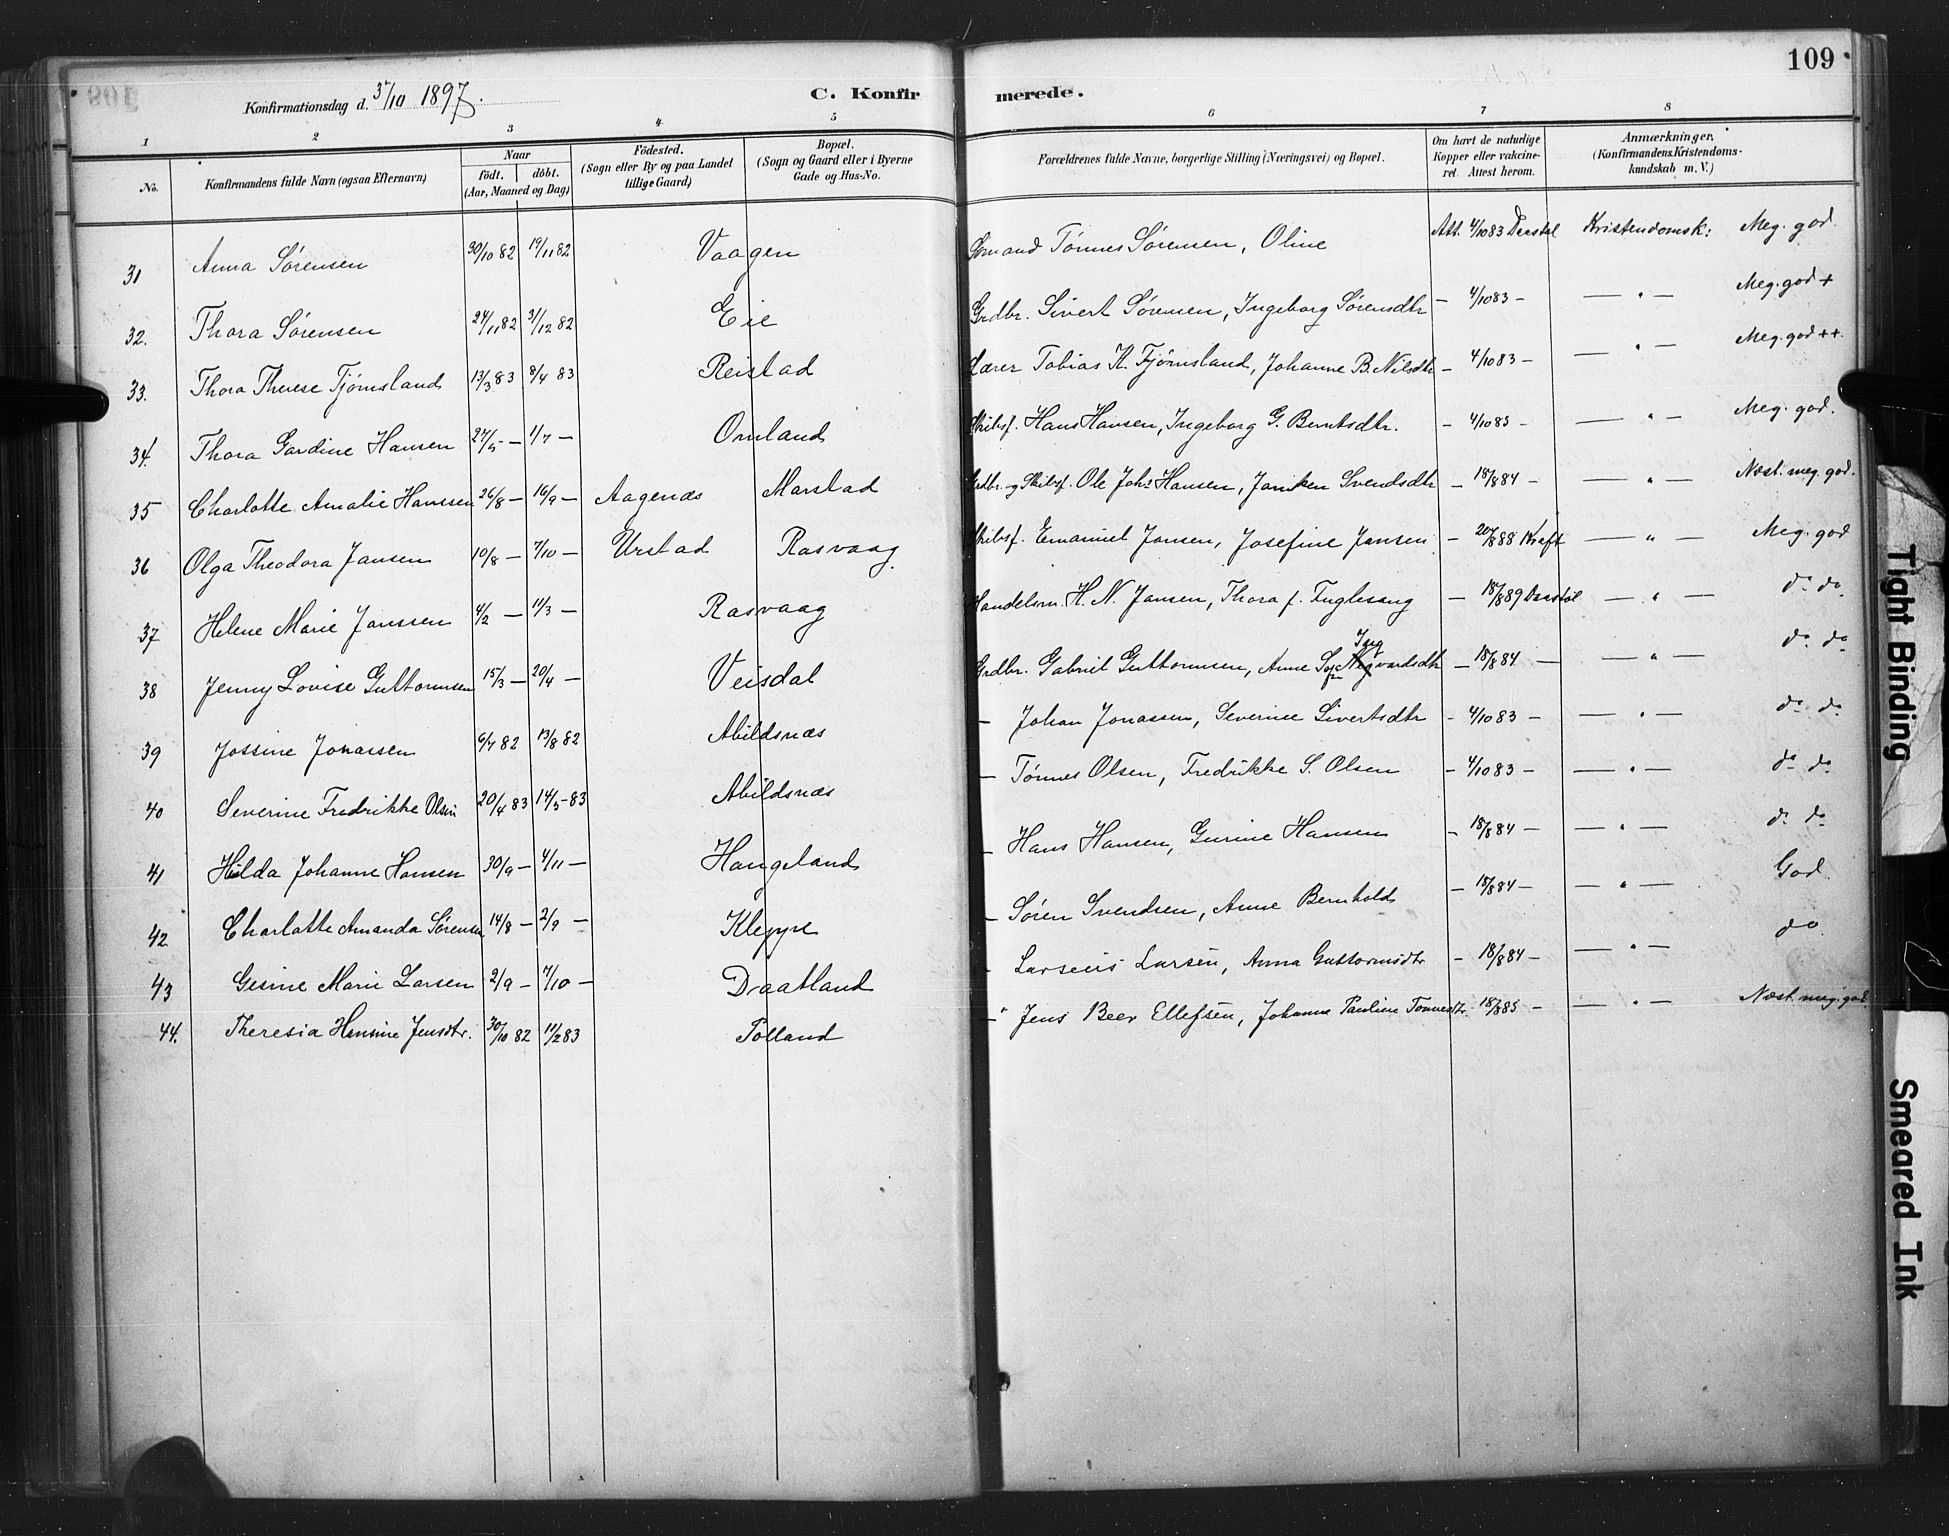 109
Konfirmationsdag d. 3/10 1897.
C. Konfirmerede.
1 2 3 4 5 6 7 8
No. Konfirmandens fulde Navn (ogsaa Efternavn) Naar födt. döbt. (Aar, Maaned og Dag) Födested. (Sogn eller By og paa Landet tillige Gaard) Bopæl. (Sogn og Gaard eller i Byerne Gade og Hus-No. Forældrenes fulde Navne, borgerlige Stilling (Næringsvei) og Bopæl. Om havt de naturlige Kopper eller vakcineret. Attest herom. Anmærkninger. (Konfirmandens Kristendomskundskab m. V.)
31 Anna Sørensen 30/10 82 19/11 82 Vaagen Sømand Tønnes Sørensen, Oline Att. 4/10 83 Daastøl Kristendomsk: Meg. god.
32. Thora Sørensen 24/11 82 31/12 82 Eie Grdbr. Sivert Sørensen, Ingeborg Sørensdtr — 4/10 83 — — " — Meg. god +
33. Thora Therese Tjømsland 13/3 83 8/4 83 Reistad Lærer Tobias K. Tjømsland, Johanne B. Nilsdtr — 4/10 83 — — " — Meg. god ++.
34. Thora Gardine Hansen 27/5 — 1/7 — Omland Skibsf. Hans Hansen, Ingeborg G. Berntsdtr. — 4/10 83 — — " — Meg. god.
35 Charlotte Amalie Hanssen 26/8 — 16/9 — Aagenæs Marstad Grdbr. og Skibsf. Ole Johs Hansen, Janiken Svendsdtr — 18/8 84 — — " — Næst. meg. god.
36 Olga Theodora Jansen 10/8 — 7/10 — Urstad Rasvaag. Skibsf. Emanuel Jansen, Josefine Jansen — 20/8 88 Kraft — " — Meg. god
37 Helene Marie Janssen 4/2 — 11/3 — Rasvaag Handelsm. H. N. Jansen, Thora f. Fuglesang — 18/8 89 Daastøl — " — do do
38 Jenny Lovise Guttormsen 15/3 — 20/4 — Veisdal Grdbr. Gabriel Guttormsen, Anne Ingvardsdtr — 18/8 84 — — " — do do
39 Jossine Jonassen 6/7 82 13/8 82 Abildsnæs — Johan Jonassen, Severine Sivertsdtr — 4/10 83 — — " — do do
40 Severine Fredrikke Olsen 20/4 83 14/5 83 Abildsnæs — Tønnes Olsen, Fredrikke S. Olsen — 4/10 83 — — " — do do
41 Hilda Johanne Hansen 30/9 — 4/11 — Haugeland — Hans Hansen, Gurine Hansen — 18/8 84 — — " — do do
42 Charlotte Amanda Sørensen 14/8 — 2/9 — Kleppe — Søren Svendsen, Anne Bernholds — 18/8 84 — — " — God.
43 Gesine Marie Larsen 2/9 — 7/10 — Draatland — Larseus Larsen, Anna Guttormsdtr — 18/8 84 — — " — do.
44. Theresia Hansine Jensdtr. 30/10 82 11/2 83 Tolland — " Jens Beer Ellefsen, Johanne Pauline Tønnesdtr. 18/8 85 — — " — Næst meg. god
Tight Binding
Smeared Ink